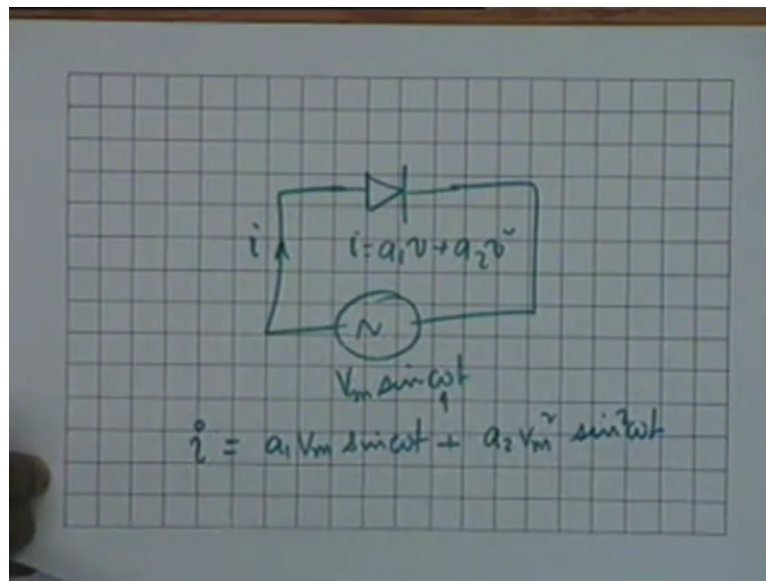 i i = a₁v + a₂v²
~
Vm sin ωt
i = a₁ Vm sin ωt + a₂ Vm² sin² ωt